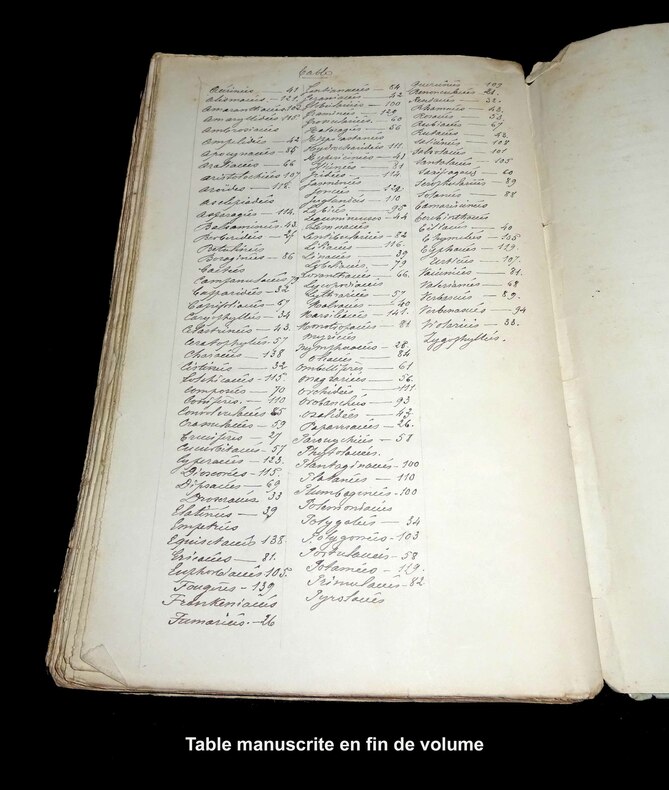 Table
Acérinées — 41
Alismacées — 121
Amaranthacées 102
Amaryllidées 115
Ambrosiacées
Ampélidées — 42
Apocynacées — 85
Araliacées — 66
Aristolochiées 107
Aroïdes — 118
Asclépiadées
Asparagées — 114
Balsaminées 43
Berberidées — 27
Bétulinées
Boraginées — 86
Cactées
Campanulacées 79
Capparidées — 32
Caprifoliacées — 67
Caryophyllées — 34
Célastrinées — 43
Ceratophyllées 57
Characées — 138
Cistinées — 32
Colchicacées — 115
Composées — 70
Conifères — 110
Convolvulacées 85
Crassulacées — 59
Crucifères — 27
Cucurbitacées — 57
Cypéracées — 123
Dioscorées — 115
Dipsacées — 69
Droseracées 33
Elatinées — 39
Empetrées
Equisetacées 138
Ericacées — 81
Euphorbiacées 105
Fougères — 139
Frankeniacées
Fumariées — 26
Gentianacées — 84
Géraniacées — 42
Globulariées — 100
Graminées — 128
Grossulariées — 60
Haloragées — 56
Hippocastanées
Hydrocharidées 111
Hypericinées — 41
Iridées — 114
Jasminées
Joncées — 122
Juglandées — 110
Labiées — 95
Légumineuses — 44
Lemnacées
Lentibulariées — 82
Liliacées — 116
Linacées — 39
Lobéliacées 79
Loranthacées — 66
Lycopodiacées
Lythrariées — 57
Malvacées — 40
Marsiliacées — 141
Monotropacées — 81
Myricées
Nymphéacées — 28
Oléacées — 84
Ombellifères — 61
Onagrariées — 56
Orchidées — 111
Orobanchées — 93
Oxalidées — 43
Papavéracées — 26
Paronychiées — 58
Phytolacées
Plantaginacées — 100
Platanées — 110
Plumbaginées — 100
Polémoniacées
Polygalées — 34
Polygonées — 103
Portulacées — 58
Potamées — 119
Primulacées — 82
Pyrolacées
Quercinées — 109
Renonculacées — 21
Résédacées — 32
Rhamnées — 43
Rosacées — 53
Rubiacées — 67
Rutacées — 43
Salicinées — 108
Salsolacées — 101
Santalacées — 105
Saxifragées — 60
Scrophulariées — 89
Solanées — 88
Tamariscinées
Térébinthacées
Tiliacées — 40
Thymelées — 105
Typhacées — 119
Urticées — 107
Vacciniées — 81
Valérianées — 68
Verbascées — 89
Verbénacées — 94
Violariées — 33
Zygophyllées
Table manuscrite en fin de volume